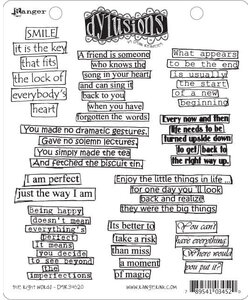 Ranger
dylusions
SMILE!
it is the key
that fits
the lock of
everybody's
heart
A friend is someone
who knows the
song in your heart
and can sing it
back to you
when you have
forgotten the words
What appears
to be the end
is usually
the start
of a new
beginning
Every now and then
life needs to be
turned upside down
to get back to
the right way up.
You made no dramatic gestures,
Gave no solemn lectures,
You simply made the tea
And fetched the biscuit tin.
I am perfect
just the way I am
Enjoy the little things in life...
for one day you'll look
back and realize
they were the big things
being happy
doesn't mean
everything's
perfect
it means
you decide
to see beyond
the
imperfections
Its better to
take a risk
than miss
a moment
of magic
You can't
have everything
Where would
you put it?
the right words - DYR34520
www.rangerink.com